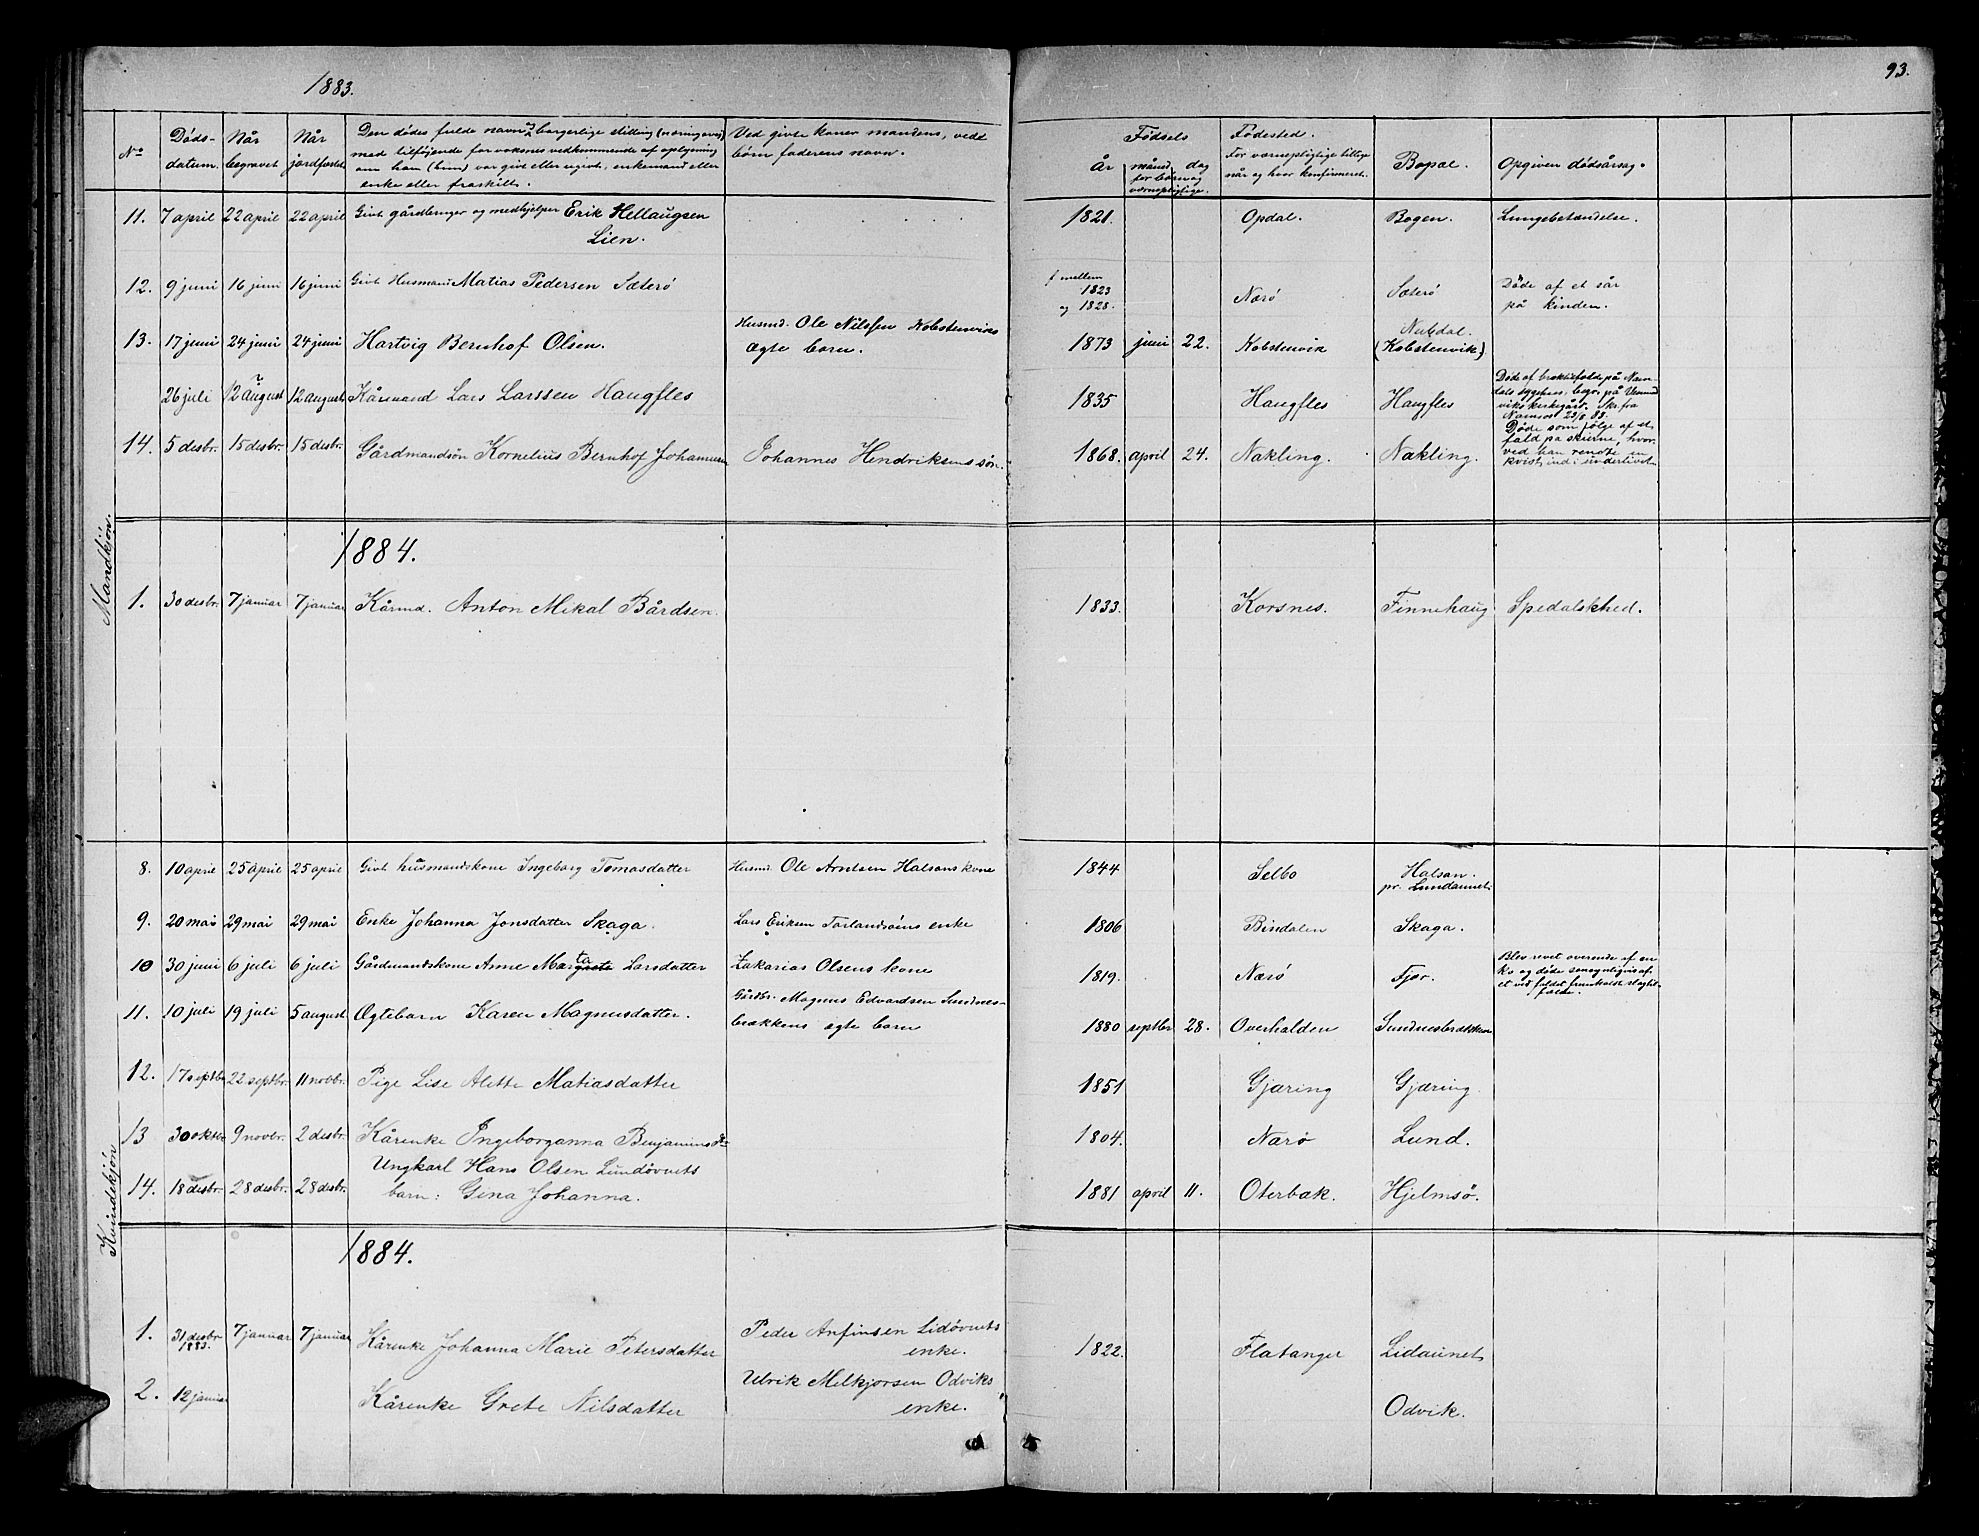 1883.
93.
No
Døds-
datum.
Når
begravet
Når
jordfæstet
Den dødes fulde navn og borgerlige stilling (næringsvej)
med tilføjende for voksnes vedkommende af oplysning
om han (hun) var givt eller ugivt, enkemand eller
enke eller fraskilt.
Ved givte koner mandens, vedt
børn faderens navn.
Fødsels
År
måned
for børn og
værnepligtige.
dag
Fødested.
For værnepligtige tillige
når og hvor konfirmeret.
Bopæl.
Opgiven dødsårsag.
Mandkjøn.
11. 7 april 22 april 22 april Givt gårdbruger og medhjelper Erik Hellaugsen 1821. Opdal. Bogen. Lungebetændelse.
Lien.
12. 9 juni 16 juni 16 juni Givt Husmand Matias Pedersen Sæterø f mellem 1823 og 1828. Nærø Sæterø Døde af et sår
på kinden.
13. 17 juni 24 juni 24 juni Hartvig Bernhof Olsen. Husmd. Ole Nilssen Kobstenviks 1873 juni 22. Kobstenvik
ægte barn. (Kobstenvik)
26 juli 12 august 12 august Kårmand Lars Larssen Haugfles 1835 Haugfles Haugfles Døde af bræktilfælde på Nam-
dals sygehus, begr. på Vemund
viks kirkegård. Skr. fra
Namsos 23/8 83.
14. 5 desbr. 15 desbr. 15 desbr. Gårdmandsøn Kornelius Bernhof Johannesen Johannes Hendriksens søn. 1868. april 24. Nakling. Nakling. Døde som følge af et
fald på skierne, hvor-
ved han rendte en
kvist ind i underlivet
1884.
1. 30 desbr. 7 januar 7 januar Kårmd. Anton Mikal Bårdsen. 1833. Korsnes. Finnehaug Spedalskhed.
Kvindekjøn
8. 10 april 25 april 25 april Givt husmandskone Ingeborg Tomasdatter Husmd. Ole Arntsen Halsans kone 1844 Selbo Halsan.
pr. Lundaunet.
9. 20 mai 29 mai 29 mai Enke Johanna Jonsdatter Skaga. Lars Eriksen Torlandsøiens enke 1806 Bindalen Skaga.
10 30 juni 6 juli 6 juli Gårdmandskone Anne Margrete ta Larsdatter Zakarias Olsens kone 1819. Nærø Fjær. Blev revet overende af en
ko og døde sansynligvis af
et ved faldet fremkaldt slagtil-
fælde.
11. 10 juli 19 juli 5 august Ægtebarn Karen Magnusdatter. Gårdbr. Magnus Edvardsen Sundnes-
brækkens ægte barn 1880 septbr 28. Overhalden Sundnesbrækken
12. 17 septbr 22 septbr. 11 novbr. Pige Lise Alette Matiasdatter 1851 Gjæring Gjæring.
13 30 oktbr 9 novbr. 2 desbr. Kårenke Ingeborganna Benjaminsdr 1804. Nærø Lund.
14. 18 desbr. 28 desbr. 28 desbr. Ungkarl Hans Olsen Lundøvnets
barn: Gina Johanna. 1881 april 11. Oterbæk. Hjelmsø.
1884.
1. 31 desbr 1883. 7 januar 7 januar Kårenke Johanna Marie Petersdatter Peder Anfinsen Lidøvnets
enke. 1822. Flatanger Lidaunet
2. 12 januar Kårenke Grete Nilsdatter Ulrik Melkjorsen Odviks
enke. Odvik.